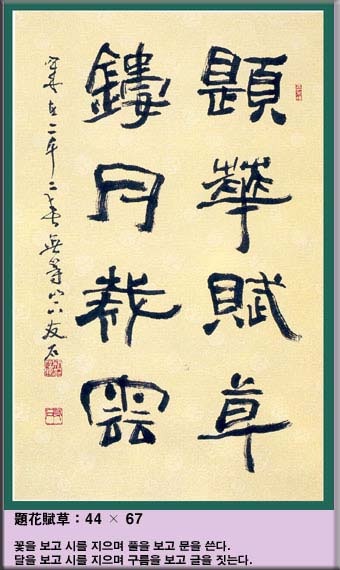 題華賦草
鏤月裁雲
無等山人友石
題花賦草 : 44 × 67
꽃을 보고 시를 지으며 풀을 보고 문을 쓴다.
달을 보고 시를 지으며 구름을 보고 글을 짓는다.